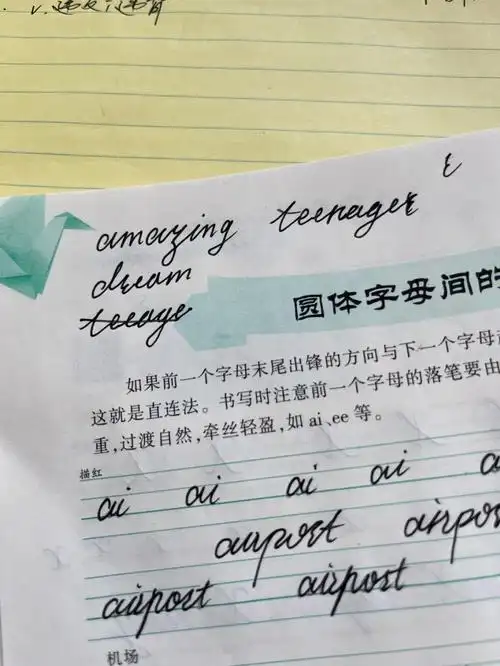 ε
amazing teenager
dream
圆体字母间的
如果前一个字母末尾出锋的方向与下一个字母
这就是直连法。书写时注意前一个字母的落笔要由
重,过渡自然,牵丝轻盈,如 ai、ee 等。
描红
ai ai ai ai a
airport airpo
airport airport
机场